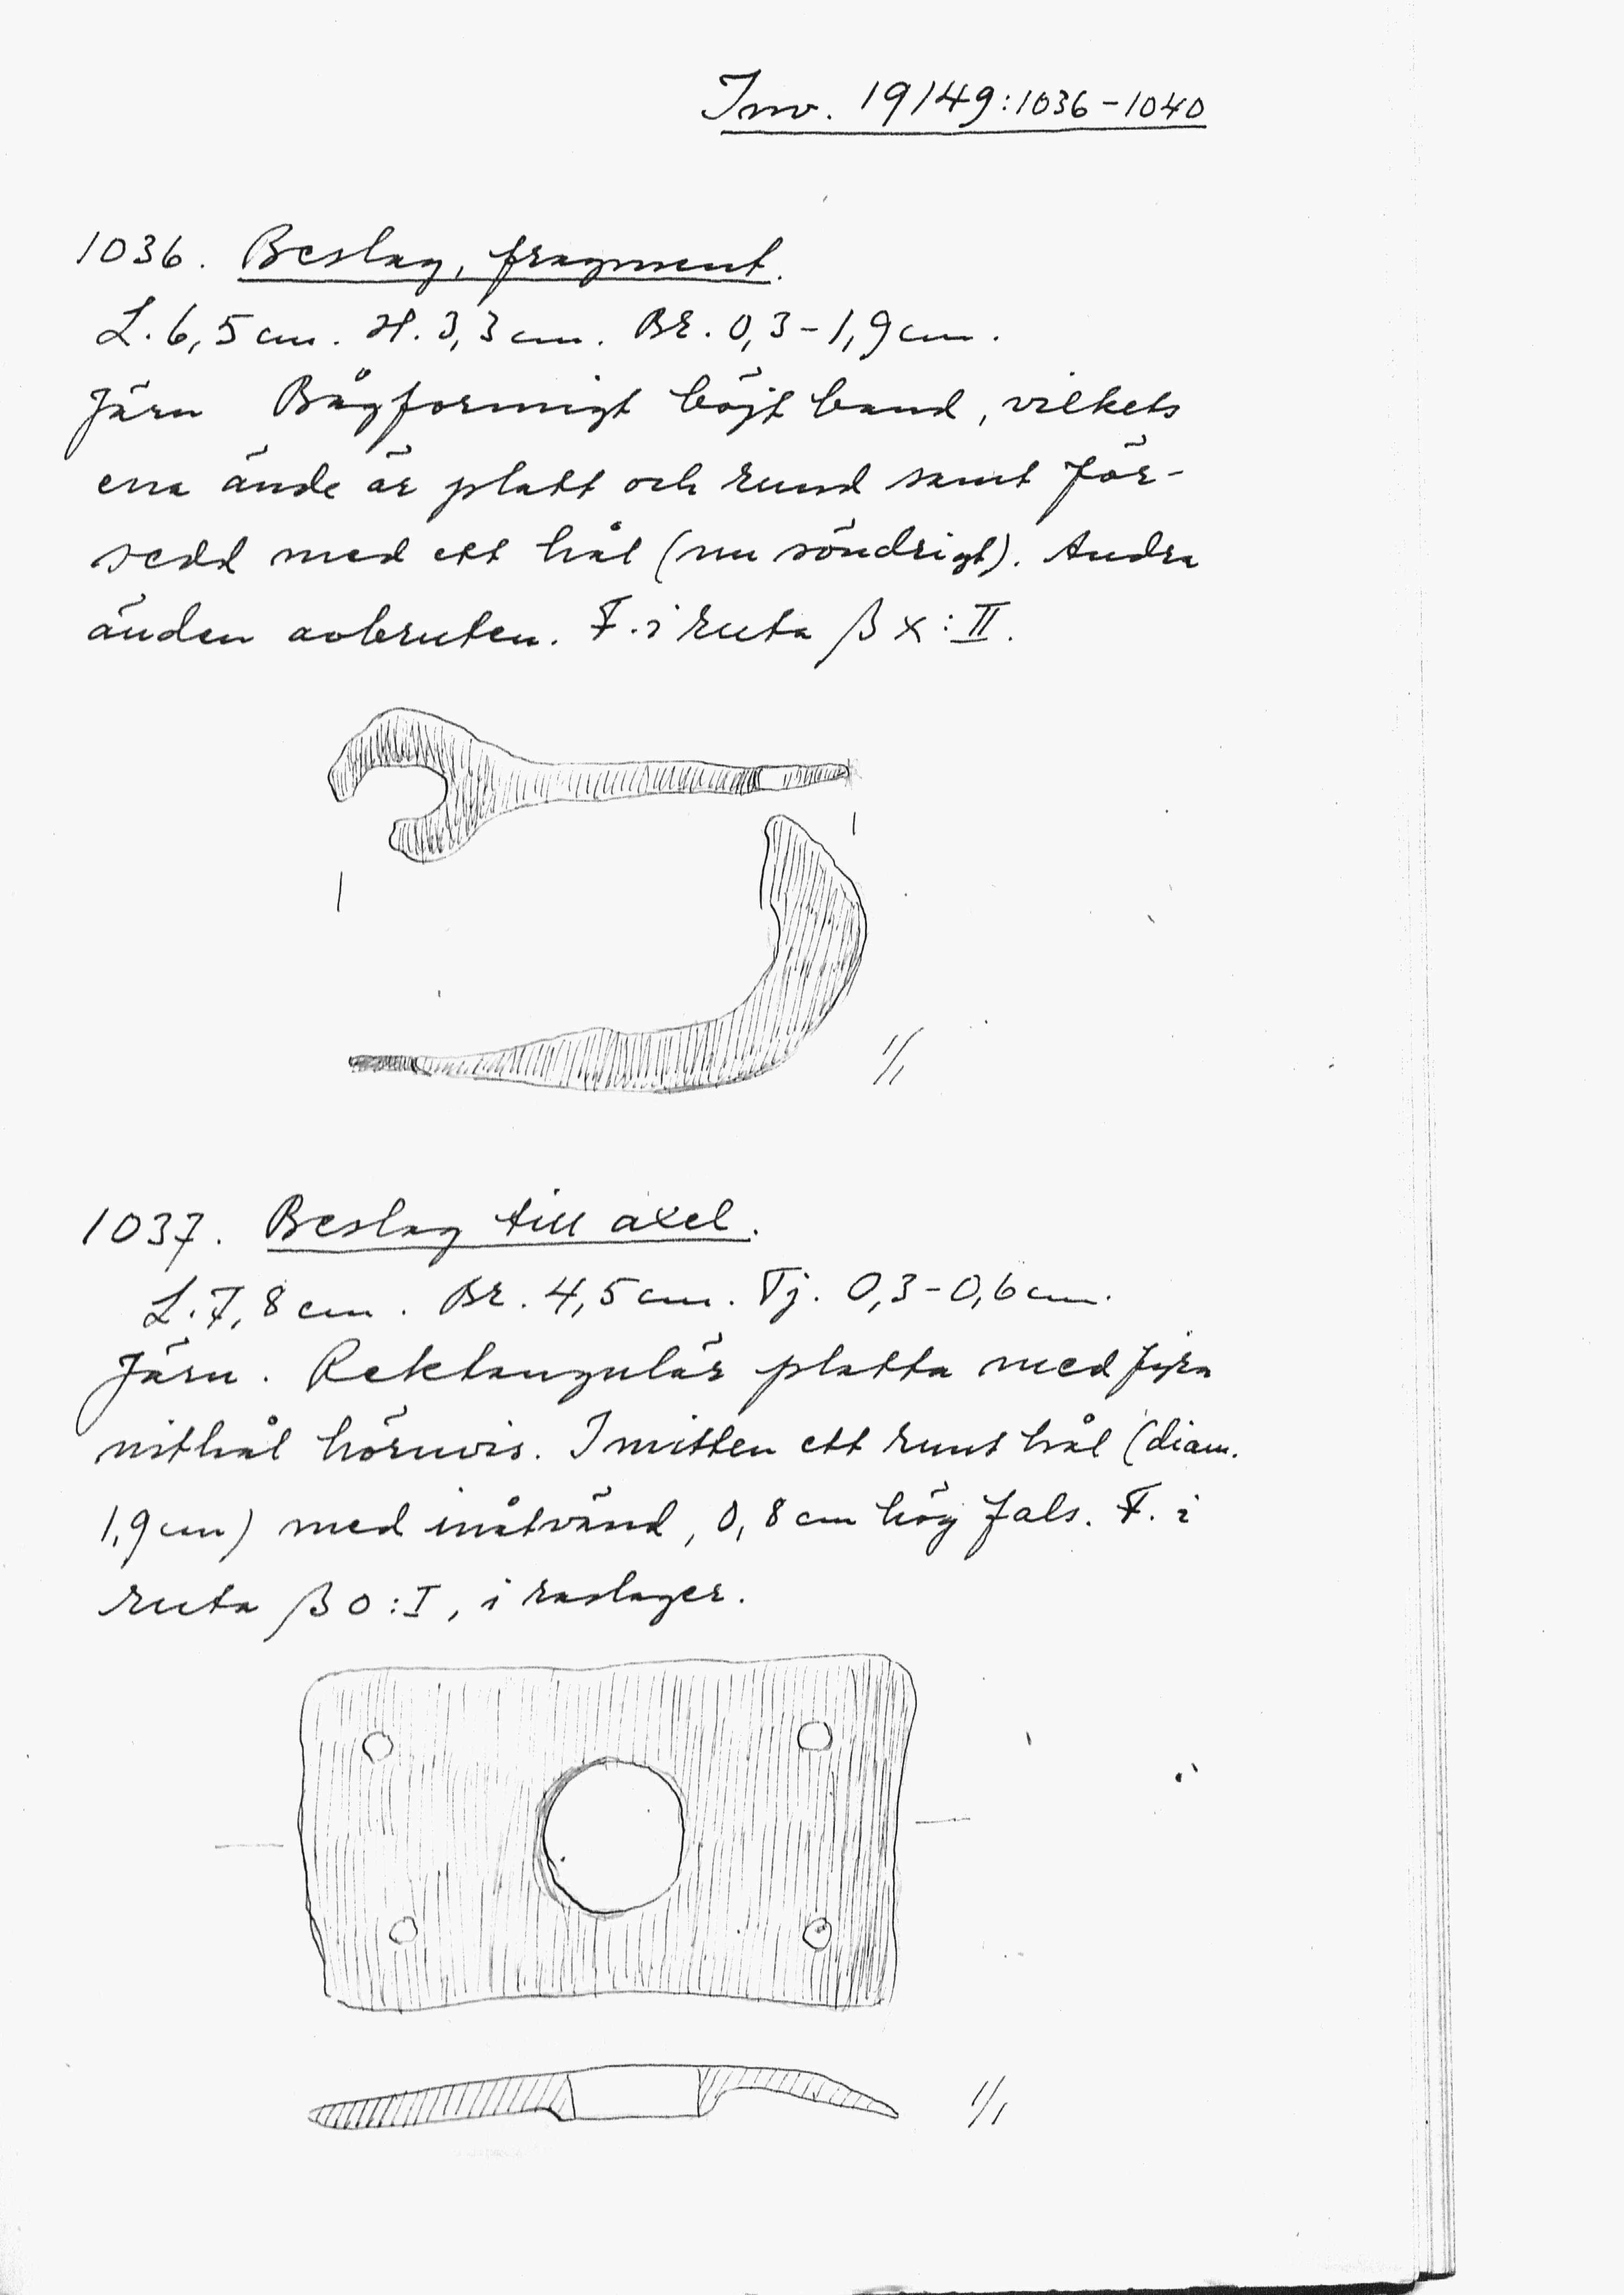 Inv. 19149:1036-1040
1036. Beslag, fragment.
L. 6,5 cm. H. 3,3 cm. Br. 0,3-1,9 cm.
Järn Bågformigt böjt band, vilkets
ena ände är platt och rund samt för-
sedd med ett hål (nu söndrigt). Andra
änden avbruten. F. i ruta β X:II.
1/1
1037. Beslag till axel.
L. 7,8 cm. Br. 4,5 cm. Tj. 0,3-0,6 cm.
Järn. Rektangulär platta med fyra
nithål hörnvis. I mitten ett runt hål (diam.
1,9 cm) med inåtvänd, 0,8 cm hög fals. F. i
ruta β O:I, i raslager.
1/1